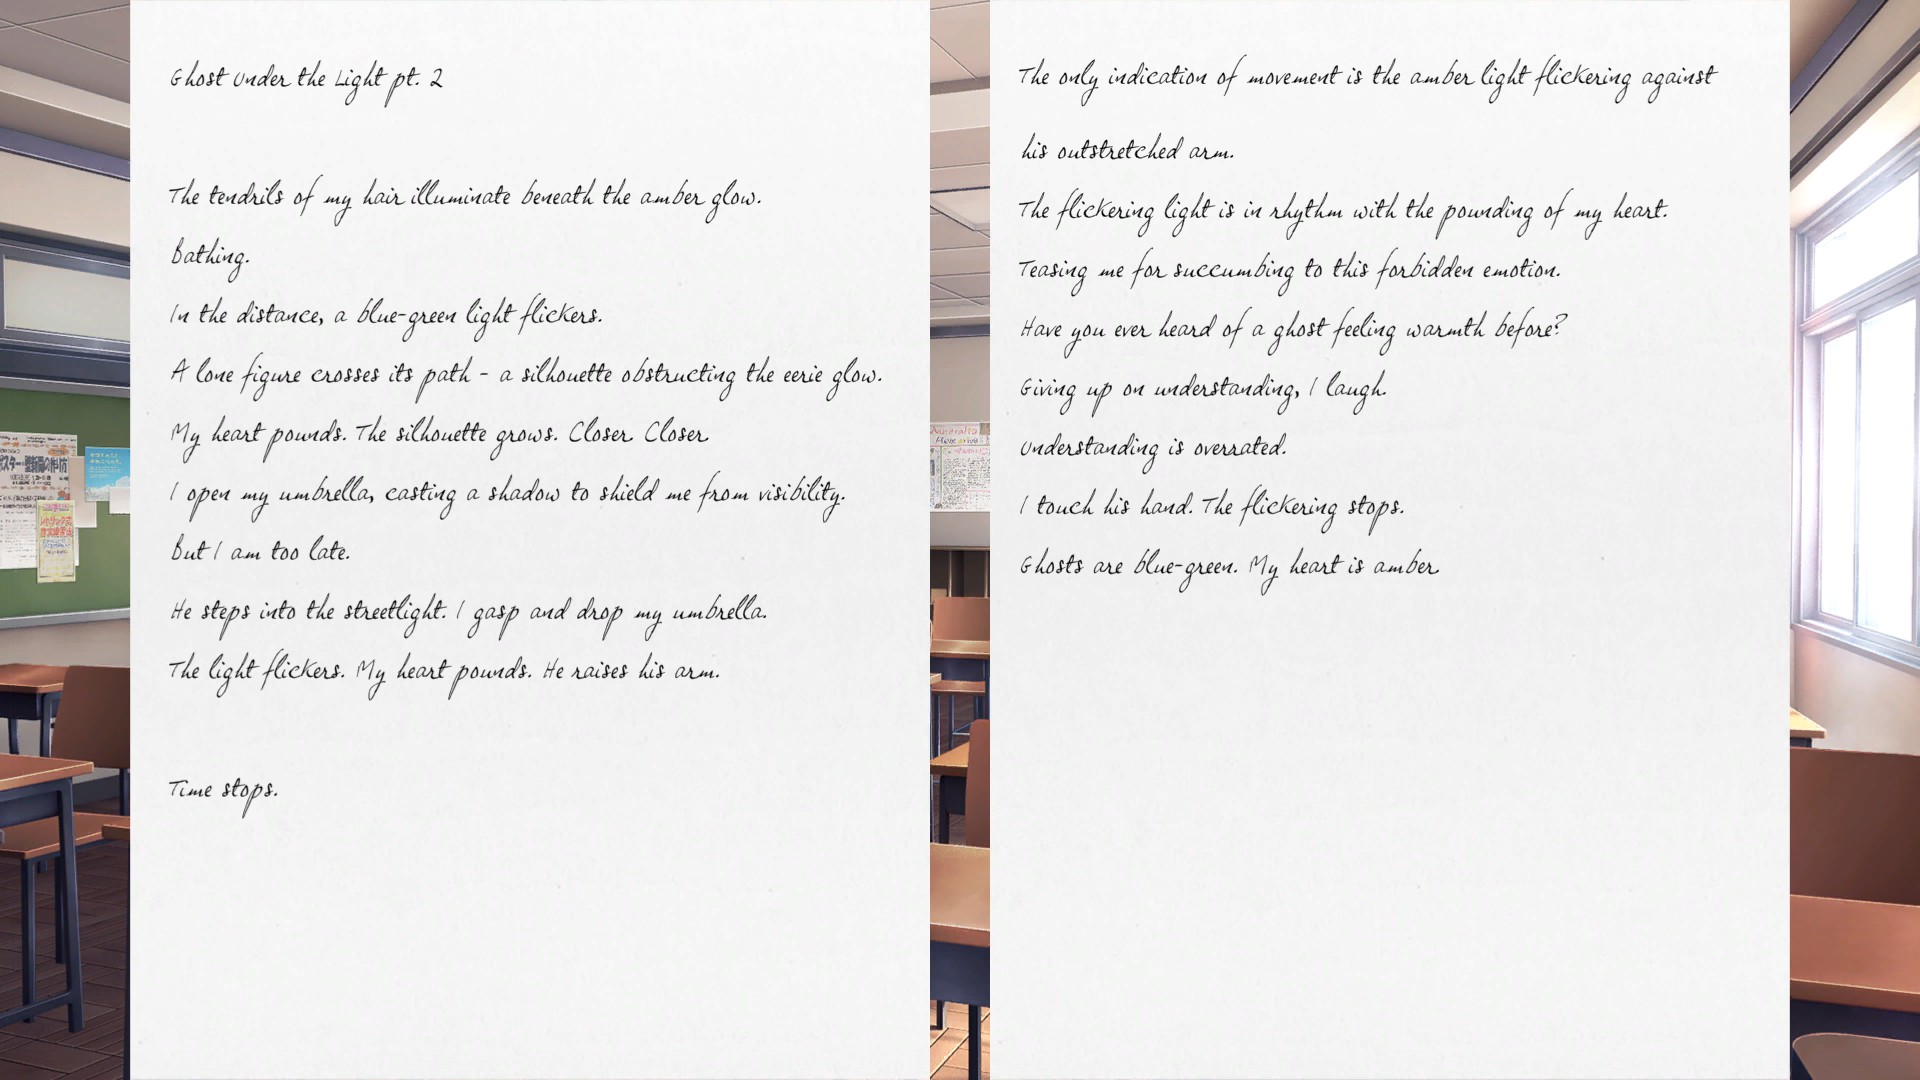 Ghost Under the Light pt. 2
The tendrils of my hair illuminate beneath the amber glow.
Bathing.
In the distance, a blue-green light flickers.
A lone figure crosses its path - a silhouette obstructing the eerie glow.
My heart pounds. The silhouette grows. Closer. Closer.
I open my umbrella, casting a shadow to shield me from visibility.
But I am too late.
He steps into the streetlight. I gasp and drop my umbrella.
The light flickers. My heart pounds. He raises his arm.
Time stops.
The only indication of movement is the amber light flickering against
his outstretched arm.
The flickering light is in rhythm with the pounding of my heart.
Teasing me for succumbing to this forbidden emotion.
Have you ever heard of a ghost feeling warmth before?
Giving up on understanding, I laugh.
Understanding is overrated.
I touch his hand. The flickering stops.
Ghosts are blue-green. My heart is amber.